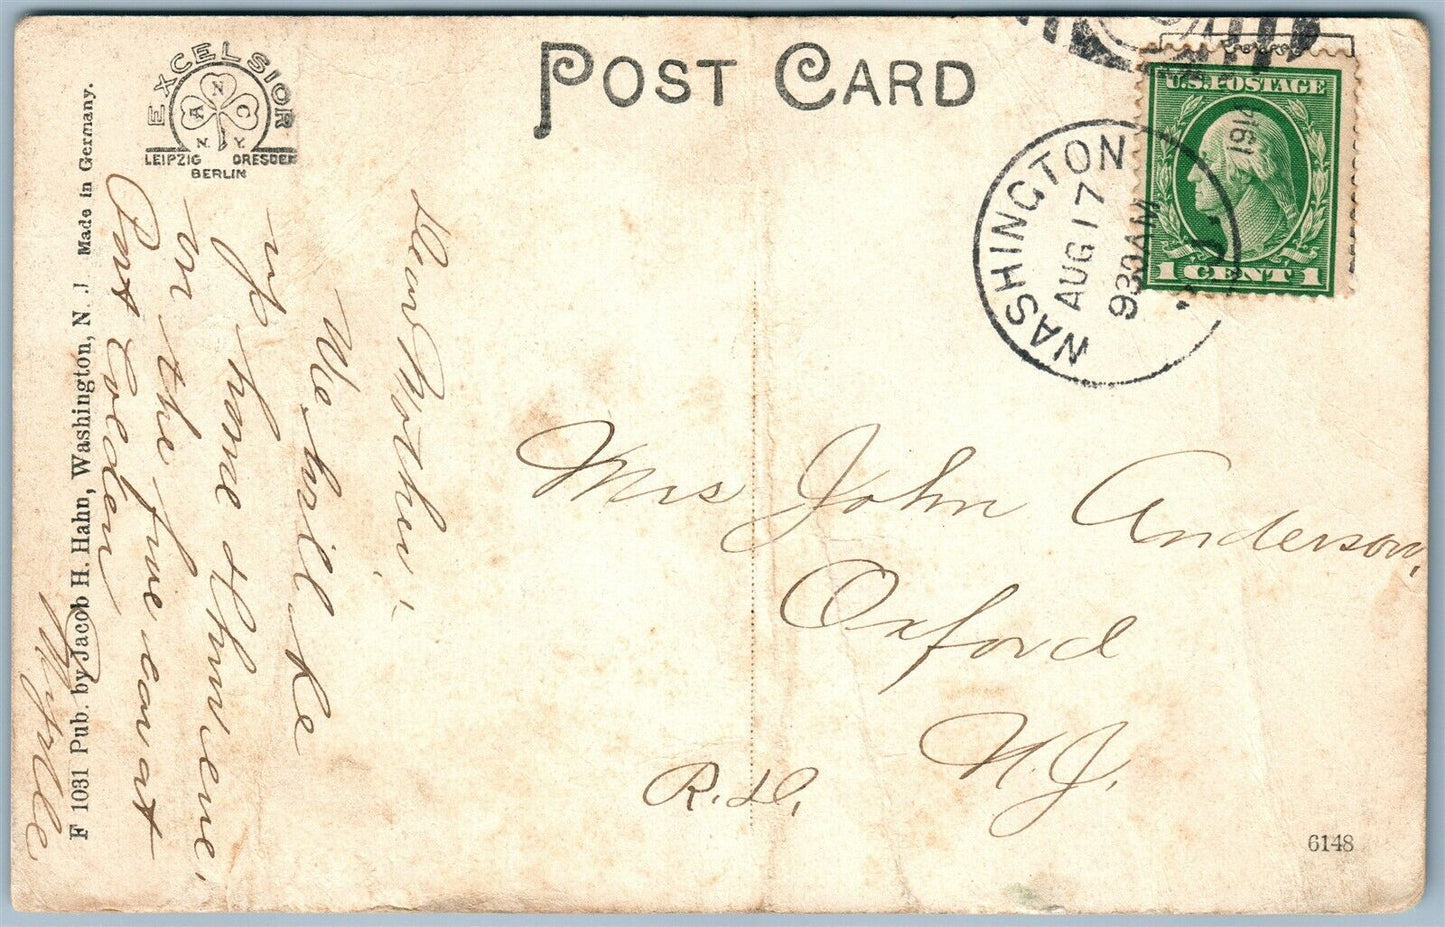 POST CARD
EXCELSIOR
A N C
N. Y.
LEIPZIG DRESDEN
BERLIN
F 1031 Pub. by Jacob H. Hahn, Washington, N. J Made in Germany.
WASHINGTON
AUG 17
930AM
1914
N.J.
U.S. POSTAGE
1 CENT 1
Dear Mother:
We will be
up home Thur eve.
on the five car at
Port Colden
Myrtle
Mrs John Anderson,
Oxford
N.J.
R.D.
6148